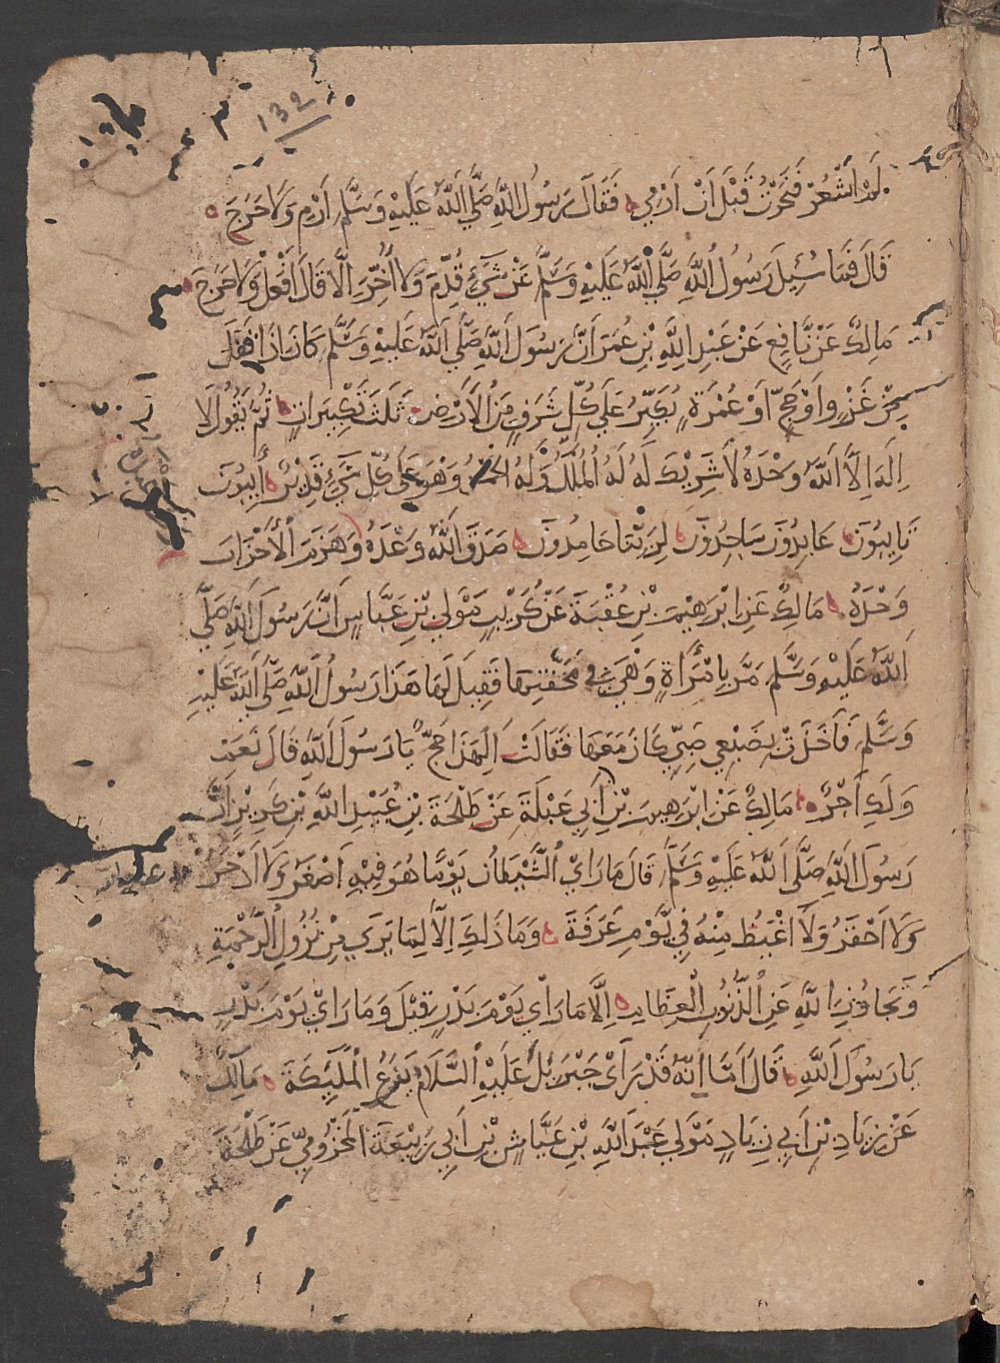 132
لَمْ اَشْعُرْ فَنَحَرْتُ قَبْلَ اَنْ اَرْمِي فَقَالَ رَسُولُ اللَّهِ صَلَّي اَللَّهُ عَلَيْهِ وَسَلَّم اَرْمِ وَلَا حَرَجَ
قَالَ فَمَا سُئِيلَ رَسُولُ اُللَّهِ صَلَّي اَللَّهُ عَلَيْهِ وَسَلَّم عَنْ شَيْءٍ قُدِّمَ وَلَا اُخِّرَ اِلَّا قَالَ اَفْعَلْ وَلَا حَرَجَ
مَالِكٌ عَنْ نَّافِعٍ عَنْ عَبْدِ اِللَّهِ بْنِ عُمَرَ اَنَّ رَسُولَ اَللَّهِ صَلَّي اَللَّهُ عَلَيْهِ وَسَلَّم كَانَ اِذَا قَفَلَ
مِنْ غَزْوٍ اَوْ حَجٍّ اَوْ عُمْرَةٍ يُكَبِّرُ عَلَي كُلِّ شَرَفٍ مِّنَ اَلْاَرْضِ ثَلَثَ تَكْبِيرَاتٍ ثُمَّ يَقُولُ لَا
اِلَهَ اِلَّا اَللَّهُ وَحْدَهُ لَا شَرِيْكَ لَهُ لَهُ اُلْمُلْكُ وَلَهُ الْحَمْدُ وَهْوَ عَلَي كُلِّ شَيْءٍ قَدِيْرٌ اَيِبُونَ
تَايِبُونَ عَابِدُونَ سَاجِدُونَ لِرَبِّنَا حَامِدُونَ صَدَقَ اَللَّهُ وَعْدَهُ وَهَزَمَ اَلْاَحْزَابَ
وَحْدَهُ مَالِكٌ عَنِ اِبْرَهِيْمَ بْنِ عُقْبَةَ عَنْ كُرَيْبٍ مَوْلَي بْنِ عَبَّاسٍ اَنَّ رَسُولَ اَللَّهِ صَلَّي
اَللَّهُ عَلَيْهِ وَسَلَّم مَرَّ بِامْرَاَةٍ وَهْيَ فِي مِحَفَّتِهَا فَقِيلَ لَهَا هَذَا رَسُولُ اُللَّهِ صَلَّي اَللَّهُ عَلَيْهِ
وَسَلَّم فَاَخَذَتْ بِضَبْعَي صَبِيٍّ كَانَ مَعَهَا فَقَالَتْ اَلِهَذَا حَجٌّ يَا رَسُولَ اَللَّهِ قَالَ نَعَمْ
وَلَكِ اَجْرٌ مَالِكٌ عَنْ اِبْرَهِيمَ بْنِ اَبِي عَبْلَةَ عَنْ طَلْحَةَ بْنِ عُبَيْدِ اللَّهِ بْنِ كَرِيْزٍ اَنَّ
رَسُولَ اَللَّهِ صَلَّي اَللَّهُ عَلَيْهِ وَسَلَّم قَالَ مَا رَاَيَ اُلشَّيْطَانُ يَوْمًا هُوَ فِيْهِ اَصْغَرُ وَلَا اَدْحَرُ
وَلَا اَحْقَرُ وَلَا اَغْيَظُ مِنْهُ فِي يَوْمِ عَرَفَةَ وَمَا ذَلِكَ اِلَّا لِمَا يَرَي مِنْ نُزُولِ اِلرَّحْمَةِ
وَتَجَاوُزِ اِللَّهِ عَنِ اُلذُّنُوبِ الْعِظَامِ اِلَّا مَا رَاَي يَوْمَ بَدْرٍ قِيْلَ وَمَا رَاَي يَوْمَ بَدْرٍ
يَا رَسُولَ اَللَّهِ قَالَ اَمَّا اِنَّهُ قَدْ رَاَي جَبْرَئِلَ عَلَيْهِ اَلسَّلَامُ يَزَعُ اَلْمَلَئِكَةَ مَالِكٌ
عَنْ زِيَادِ بْنِ اَبِي زِيَادٍ مَوْلَي عَبْدِ اَللَّهِ بْنِ عَيَّاشِ بْنِ اَبِي رَبِيْعَةَ الْمَخْزُومِيِّ عَنْ طَلْحَةَ